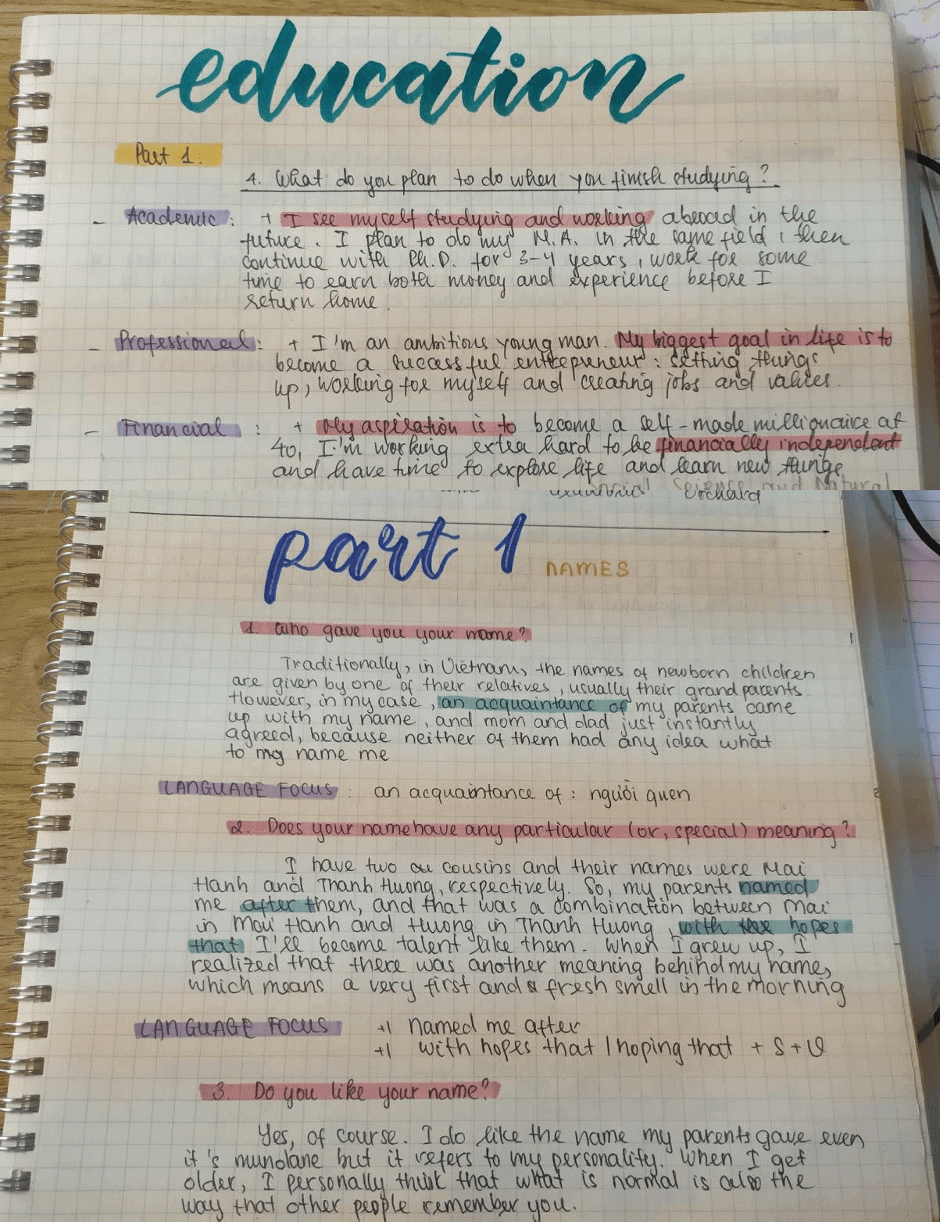 education
Part 1.
4. What do you plan to do when you finish studying?
- Academic : + I see myself studying and working abroad in the
future. I plan to do my M.A. in the same field, then
continue with Ph.D. for 3-4 years, work for some
time to earn both money and experience before I
return home.
- Professional : + I'm an ambitious young man. My biggest goal in life is to
become a successful entrepreneur : setting things
up, working for myself and creating jobs and values.
- Financial : + My aspiration is to become a self-made millionaire at
40, I'm working extra hard to be financially independent
and have time to explore life and learn new things
Social Science and Natural
Orchard
part 1 NAMES
1. Who gave you your name?
Traditionally, in Vietnam, the names of newborn children
are given by one of their relatives, usually their grand parents.
However, in my case, an acquaintance of my parents came
up with my name, and mom and dad just instantly
agreed, because neither of them had any idea what
to name me
LANGUAGE FOCUS : an acquaintance of : người quen
2. Does your name have any particular (or, special) meaning?
I have two cousins and their names were Mai
Hanh and Thanh Huong, respectively. So, my parents named
me after them, and that was a combination between Mai
in Mai Hanh and Huong in Thanh Huong, with the hopes
that I'll become talent like them. When I grew up, I
realized that there was another meaning behind my name,
which means a very first and fresh smell in the morning
LANGUAGE FOCUS +, named me after
+, with hopes that / hoping that + S + V
3. Do you like your name?
Yes, of course. I do like the name my parents gave even
it's mundane but it refers to my personality. When I get
older, I personally think that what is normal is also the
way that other people remember you.